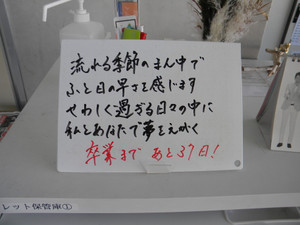 流れる季節のまん中で
ふと日の早さを感じます
せわしく過ぎる日々の中に
私とあなたで夢をえがく
卒業まで あと37日!
レット保管庫①